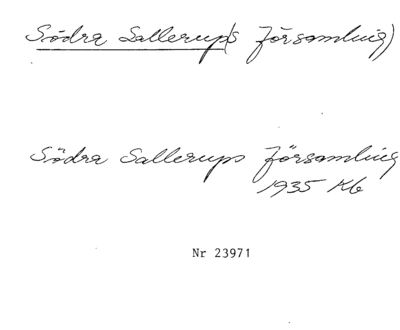 Södra Sallerup(s Församling)
Södra Sallerups Församling
1935 Kb
Nr 23971